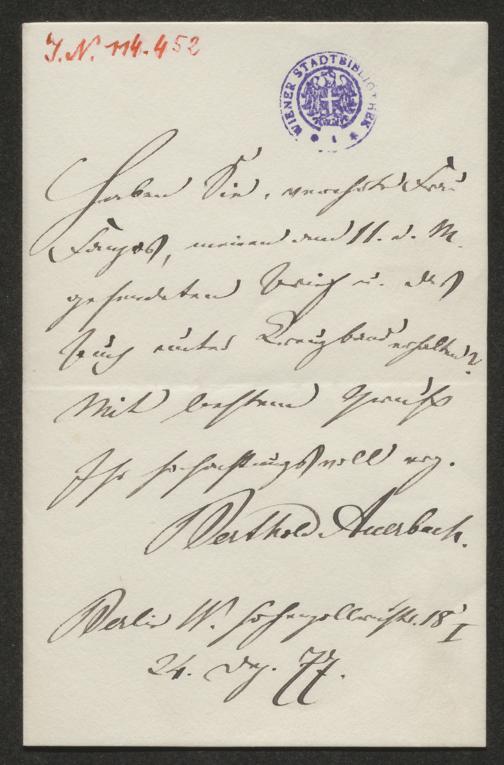 J. N. 114.452
WIENER STADTBIBLIOTHEK
Haben Sie, verehrte Frau
meinen am 11. d. M.
gesendeten Brief u. das
Buch unter Kreuzband erhalten?
Mit bestem Gruß
Ihr hochachtungsvoll erg.
Berthold Auerbach.
Berlin W. Hohenzollernstr. 18 I
24. Dez. 77.